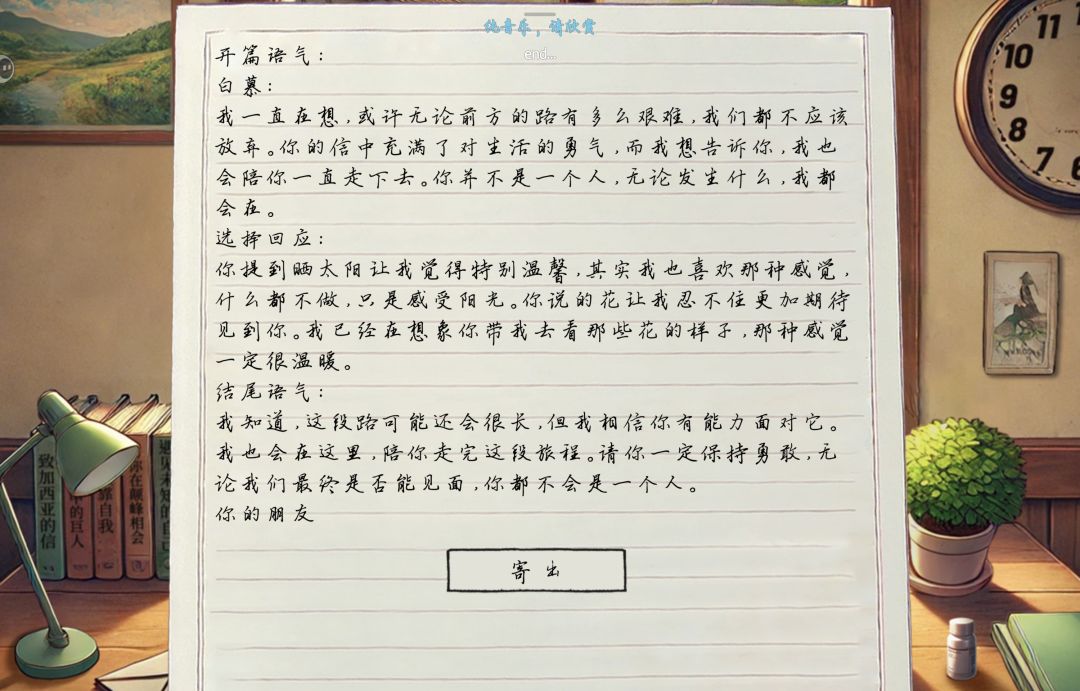 纯音乐，请欣赏
end...
开篇语气：
白慕：
我一直在想，或许无论前方的路有多么艰难，我们都不应该
放弃。你的信中充满了对生活的勇气，而我想告诉你，我也
会陪你一直走下去。你并不是一个人，无论发生什么，我都
会在。
选择回应：
你提到晒太阳让我觉得特别温馨，其实我也喜欢那种感觉，
什么都不做，只是感受阳光。你说的花让我忍不住更加期待
见到你。我已经在想象你带我去看那些花的样子，那种感觉
一定很温暖。
结尾语气：
我知道，这段路可能还会很长，但我相信你有能力面对它。
我也会在这里，陪你走完这段旅程。请你一定保持勇敢，无
论我们最终是否能见面，你都不会是一个人。
你的朋友
寄出
致加西亚的信
中的巨人
靠自我
你在巅峰相会
遇见未知的自己
11
10
9
8
7
6